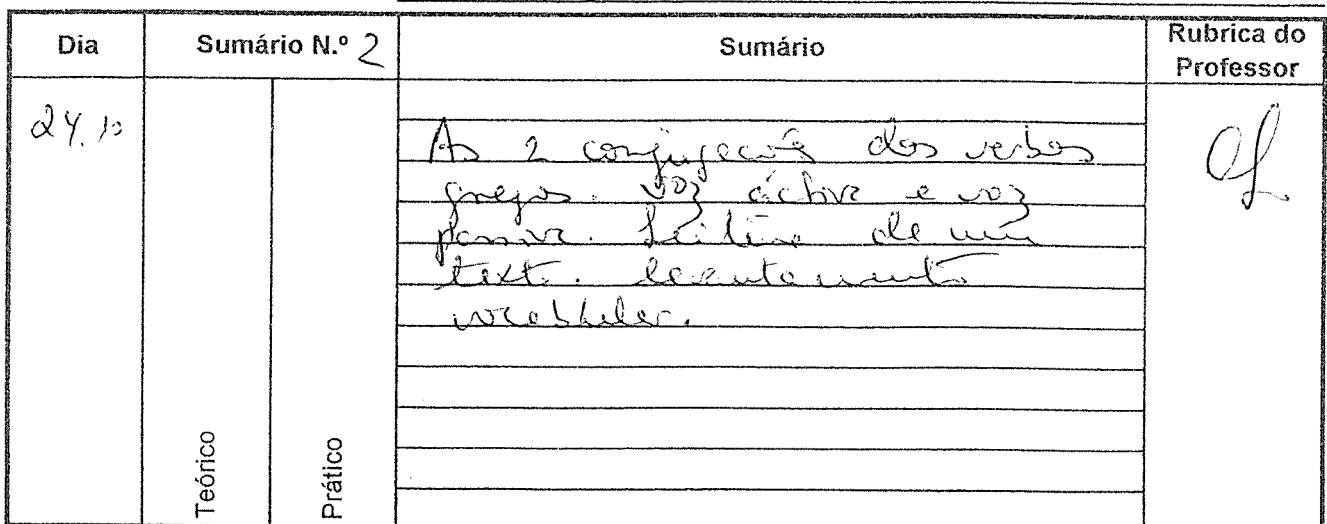 Dia
Sumário N.º 2
Sumário
Rubrica do
Professor
24.10
As 2 conjugações dos verbos
gregos. voz activa e voz
passiva. Leitura de um
texto. levantamento
vocabular.
Teórico
Prático